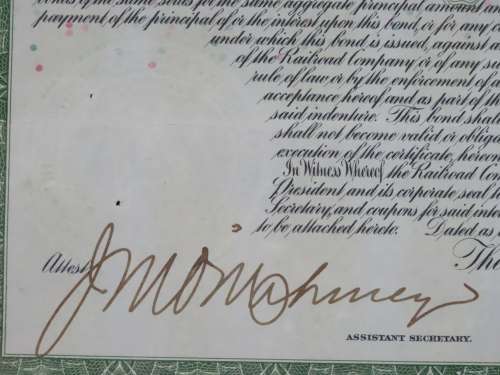 bonds of the same series for the same aggregate principal amount
payment of the principal of or the interest upon this bond, or for any
under which this bond is issued, against
of the Railroad Company or of any su
rule of law or by the enforcement of
acceptance hereof and as part of the
said indenture. This bond shal
shall not become valid or obliga
execution of the certificate, hereo
In Witness Whereof the Railroad Con
President and its corporate seal
Secretary, and coupons for said int
to be attached hereto. Dated as
The
Attest
ASSISTANT SECRETARY.